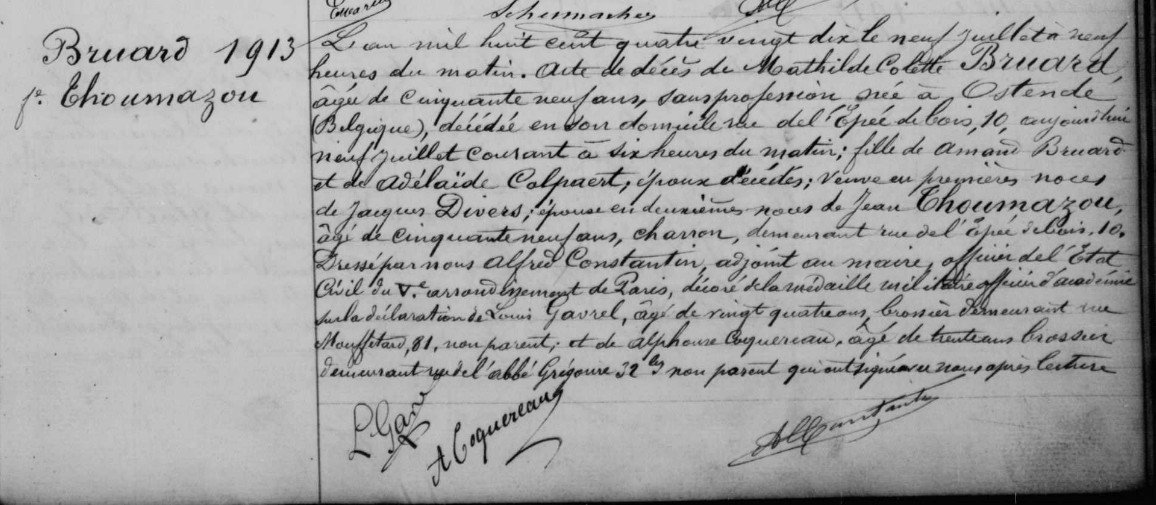 Schumacher
Bruard 1913
fe Thoumazou
L'an mil huit cent quatre vingt dix le neuf juillet à neuf
heures du matin. Acte de décès de Mathilde Colette Bruard,
âgée de cinquante neuf ans, sans profession née à Ostende
(Belgique), décédée en son domicile rue de l'Épée de bois, 10, aujourd'hui
neuf juillet courant à six heures du matin; fille de Amand Bruard
et de Adélaïde Colpaert, époux décédés; veuve en premières noces
de Jacques Divers; épouse en deuxièmes noces de Jean Thoumazou,
âgé de cinquante neuf ans, charron, demeurant rue de l'Épée de bois, 10.
Dressé par nous Alfred Constantin, adjoint au maire, officier de l'État
Civil du Ve arrondissement de Paris, décoré de la médaille militaire officier d'académie
sur la déclaration de Louis Gavrel, âgé de vingt quatre ans, brossier demeurant rue
Mouffetard, 81, non parent; et de Alphonse Coquereau, âgé de trente ans brossier
demeurant rue de l'abbé Grégoire 32 bis non parent qui ont signé avec nous après lecture
L Gavrel
A Coquereau
A Constantin